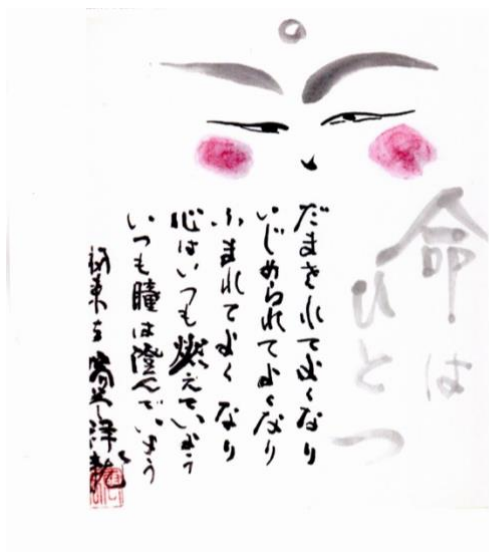 命は
ひとつ
だまされてよくなり
いじめられてよくなり
ふまれてよくなり
心はいつも燃えていよう
いつも瞳は澄んでいよう